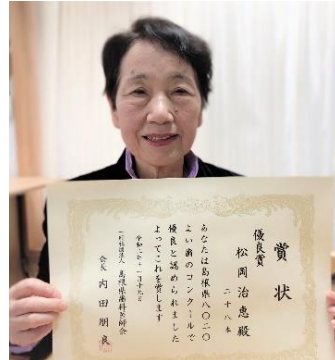 賞状
優良賞
松岡治恵殿
二十八本
あなたは島根県八〇二〇
よい歯のコンクールで
優良と認められました
よってこれを賞します
令和二年十一月十九日
一般社団法人 島根県歯科医師会
会長 内田朋良